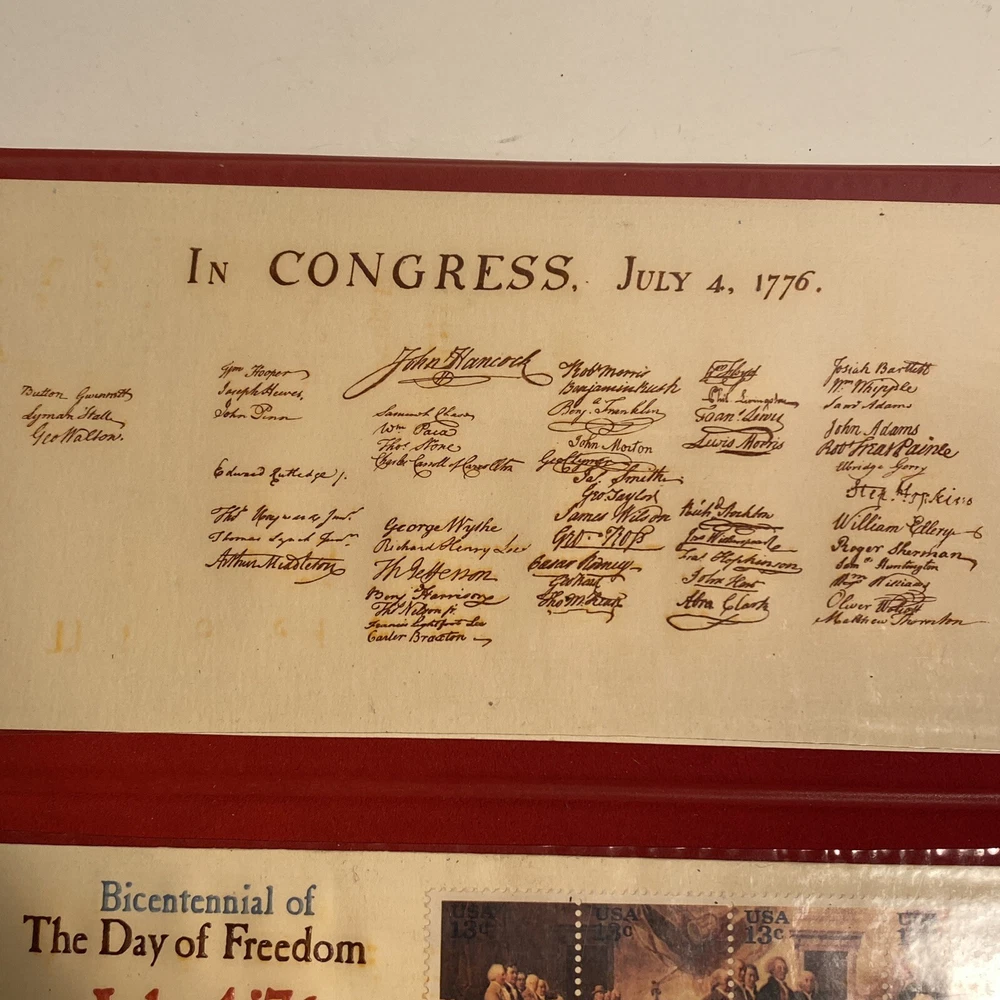 In CONGRESS, July 4, 1776.
Button Gwinnett
Lyman Hall
Geo Walton.
Wm Hooper
Joseph Hewes,
John Penn
Edward Rutledge /.
Thos Heyward Junr.
Thomas Lynch Junr.
Arthur Middleton
John Hancock
Samuel Chase
Wm Paca
Thos. Stone
Charles Carroll of Carrollton
George Wythe
Richard Henry Lee
Th Jefferson
Benj Harrison
Thos Nelson jr.
Francis Lightfoot Lee
Carter Braxton
Robt Morris
Benjamin Rush
Benj. Franklin
John Morton
Geo Clymer
Jas. Smith
Geo. Taylor
James Wilson
Geo. Ross
Caesar Rodney
Geo Read
Tho M:Kean
Wm Floyd
Phil. Livingston
Frans. Lewis
Lewis Morris
Richd Stockton
Jno Witherspoon
Fras. Hopkinson
John Hart
Abra Clark
Josiah Bartlett
Wm Whipple
Saml Adams
John Adams
Robt Treat Paine
Elbridge Gerry
Step. Hopkins
William Ellery
Roger Sherman
Saml Huntington
Wm Williams
Oliver Wolcott
Matthew Thornton
Bicentennial of
The Day of Freedom
USA
13c
USA
13c
USA
13c